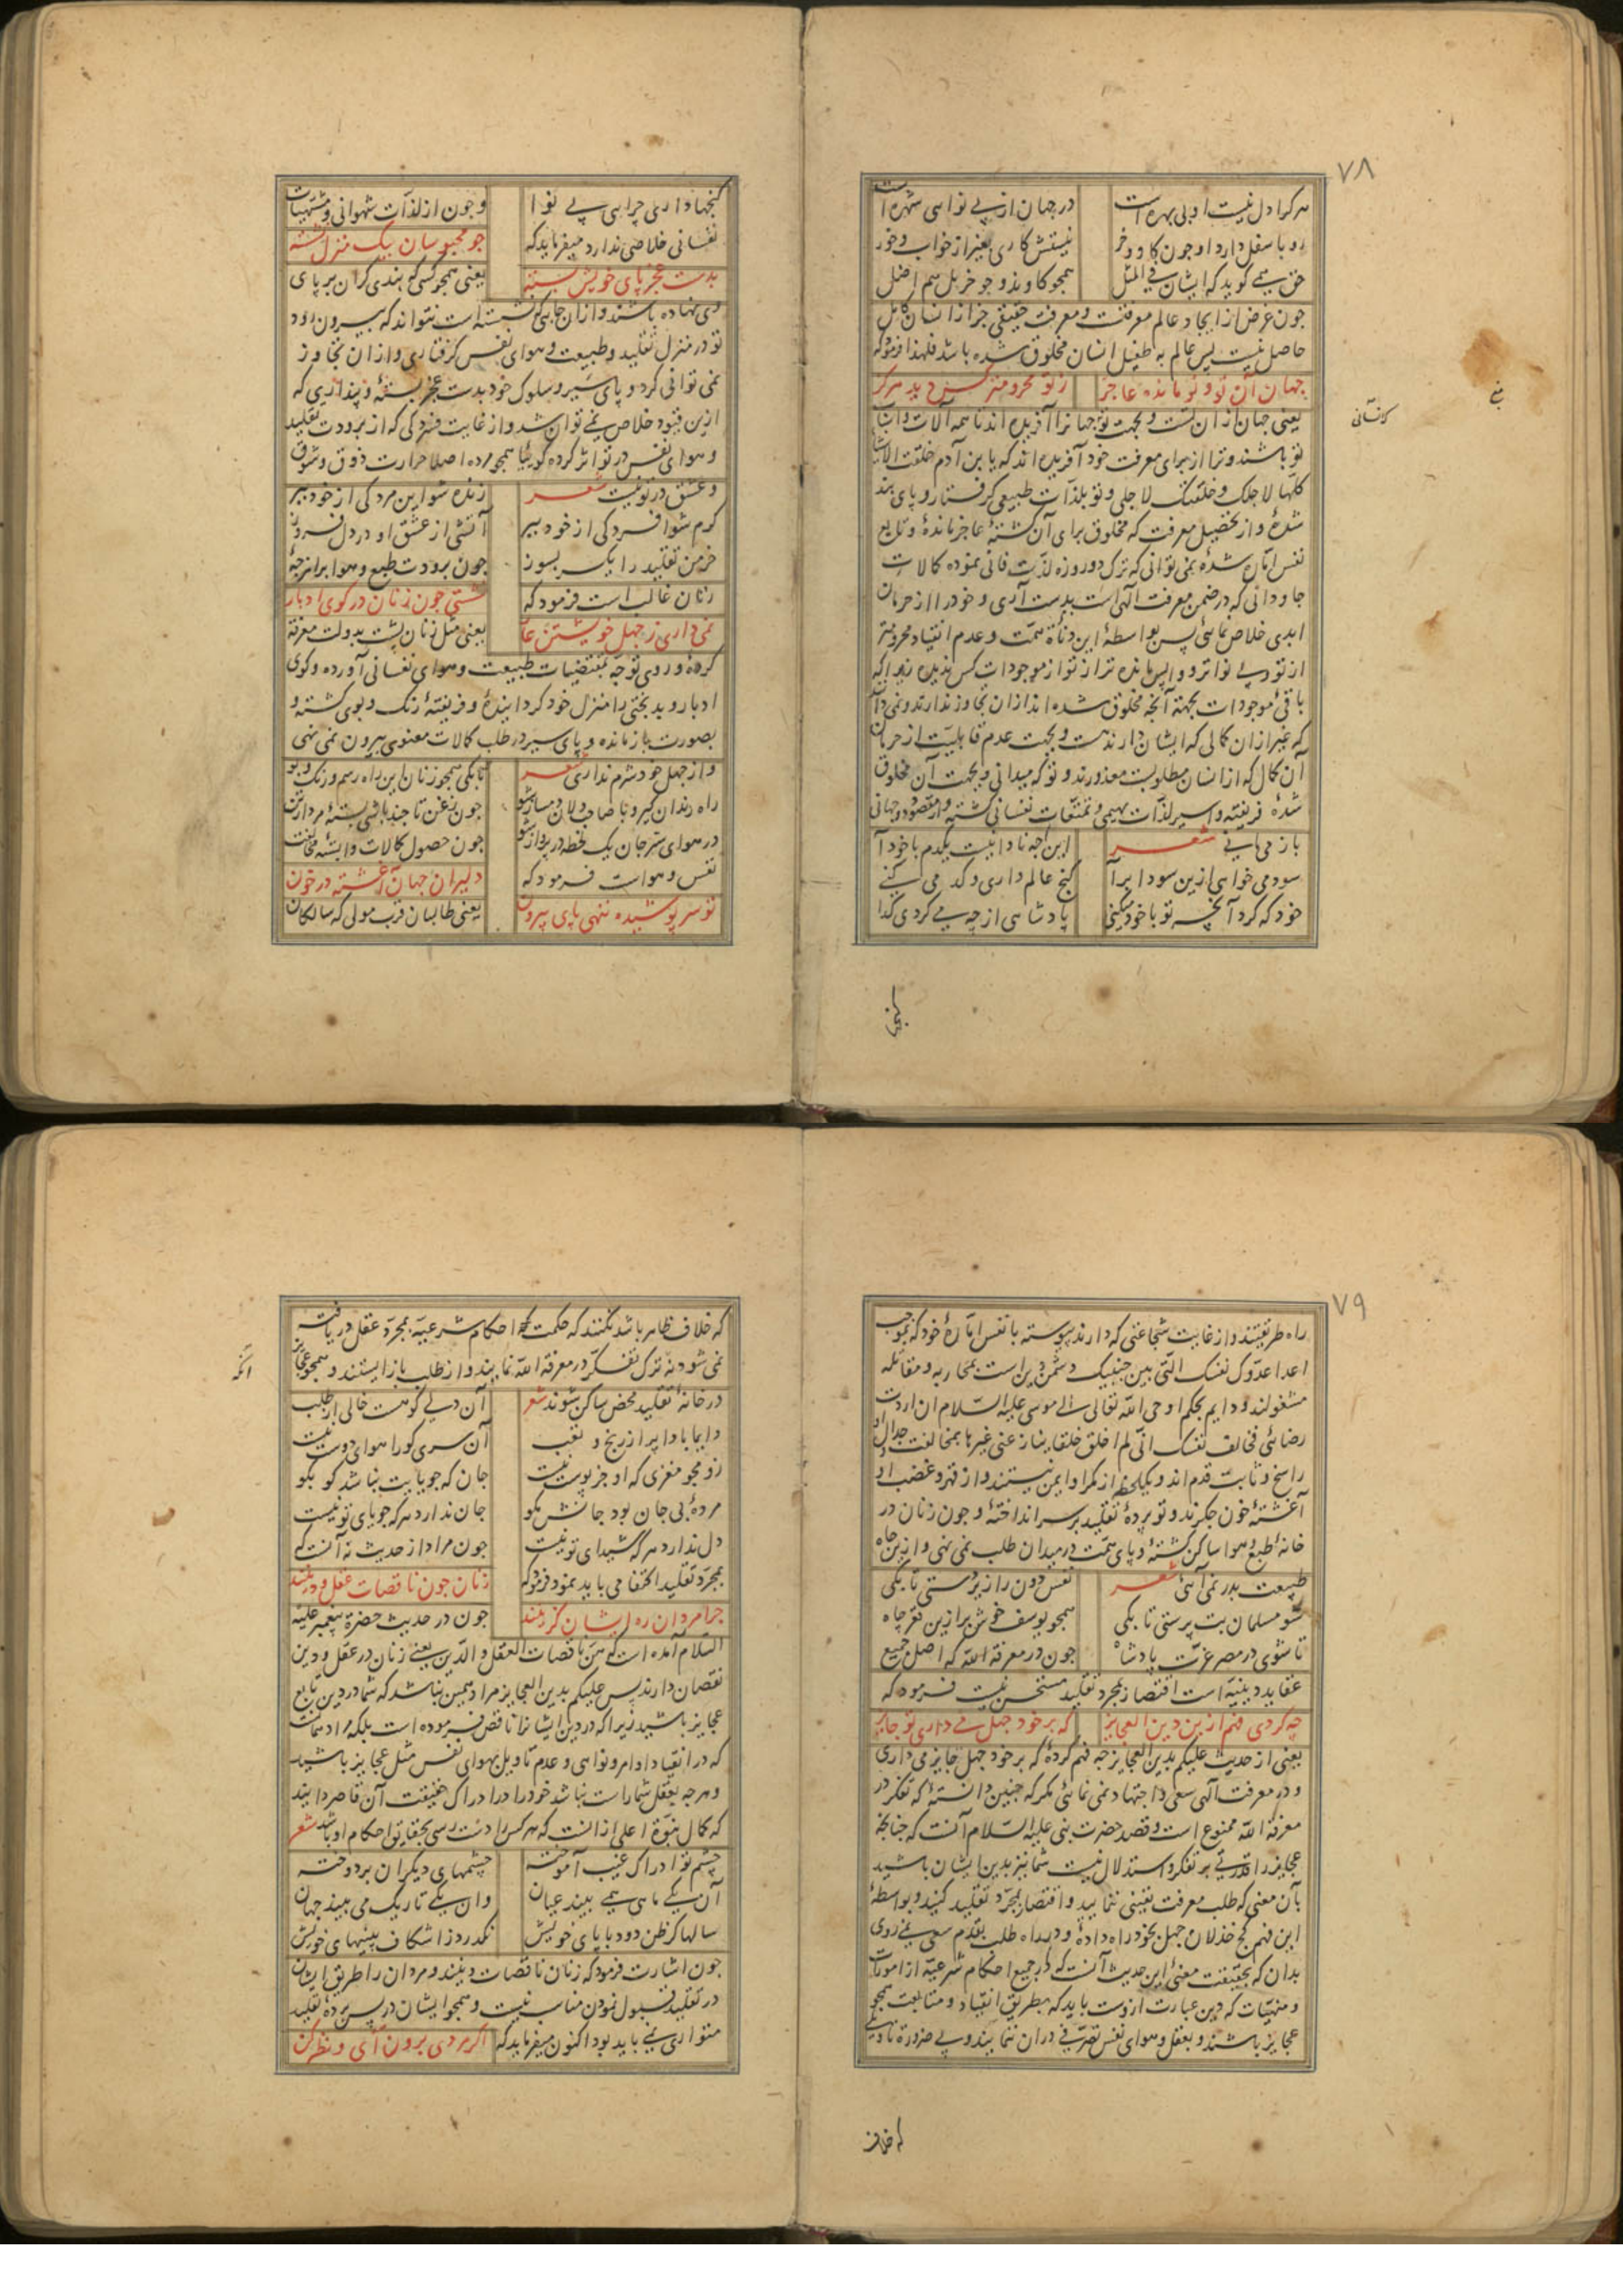 ٧٨
هرکرا دل نیست او بی بهره است
در جهان از بے نوایی شهره است
رو باسفل دارد او چون کاو و خر
نیستش کاری بغیر از خواب و خور
حق همے کوید که ایشان فی المثل
همچو کاوند و چو خر بل هم اضل
چون غرض از ایجاد عالم معرفتست و معرفت حقیقی جز از انسان کامل
حاصل نیست پس عالم به طفیل انسان مخلوق شده باشد فلهذا فرموده
جهان آن تو و تو مانده عاجز
ز تو محرومتر کس دید هرکز
یعنی جهان از آن تست و بجهت تو جهانرا آفریده اند تا همه آلات و اسباب
تو باشند و ترا از برای معرفت خود آفریده اند که یا بن آدم خلقت الاشیا
کلها لاجلک و خلقتک لاجلی و تو بلذات طبیعی کرفتار و پای بند
شدهٔ و از تحصیل معرفت که مخلوق برای آن کشتهٔ عاجز ماندهٔ و تابع
نفس اماره شدهٔ نمی توانی که ترک دو روزه لذت فانی نموده کمالات
جاودانی که در ضمن معرفت الهی است بدست آری و خود را از حرمان
ابدی خلاص نمائی پس بواسطهٔ این دنائة همت و عدم انقیاد محرومتر
از تو و بے نواتر و واپس مانده تر از تو از موجودات کس ندیده زیرا که
باقی موجودات بجهته آنچه مخلوق شده اند از ان تجاوز ندارند و نمی دانند
که غیر از ان کمالی که ایشان دارند هست و بجهت عدم قابلیت از حرمان
آن کمال که از انسان مطلوبست معذورند و تو که میدانی و بجهت آن مخلوق
شدهٔ فریفته و اسیر لذات بهیمی و تمتعات نفسانی کشته و از مقصود دو جهانی
باز می مانی شعر
این چه نادانیست یکدم با خود آ
سود می خواهی ازین سودا برآ
کنج عالم داری و کد می کنے
خود که کرد آنچه تو با خود میکنی
پادشاهی از چه می کردی کدا
کنجها داری چرایی بے نوا
وچون از لذات شهوانی و مشتهیات
نفسانی خلاصی ندارد میفرماید که
چو محبوسان بیک منزل نشسته
بدست عجز پای خویش بسته
یعنی همچو کسی که بندی کران بر پای
وی نهاده باشند و از ان جایی که نشسته است نتواند که بیرون رود
تو در منزل تقلید و طبیعت و هوای نفس کرفتاری و از ان تجاوز
نمی توانی کرد و پای سیر و سلوک خود بدست عجز بستهٔ و پنداری که
ازین قیود خلاص نمے توان شد و از غایت فسردکی که از برودت تقلید
و هوای نفس در تو اثر کرده کوئیا همچو مرده اصلا حرارت ذوق و شوق
و عشق در تو نیست شعر
زنده شو این مردکی از خود ببر
کرم شو افسردکی از خود ببر
آتشی از عشق او در دل فروز
خرمن تقلید را یکسر بسوز
چون برودت طبع و هوا بر امزجهٔ
زنان غالب است فرمود که
نشستی چون زنان در کوی ادبار
نمی داری ز جهل خویشتن عار
یعنی مثل زنان پشت بدولت معرفة
کردهٔ و روی توجه بمقتضیات طبیعت و هوای نفسانی آورده و کوی
ادبار و بدبختی را منزل خود کردانیدهٔ و فریفتهٔ رنک و بوی کشته و
بصورت بازمانده و پای سیر در طلب کمالات معنوی بیرون نمی نهی
و از جهل خود شرم نداری شعر
تا بکی همچو زنان این راه و رسم و رنک و بو
راه رندان کیر و با صاحب دلان دمساز شو
چون زغن تا چند باشی بستهٔ مردار تن
در هوای سیر جان یک لحظه در پرواز شو
چون حصول کمالات وابستهٔ مخالفت
نفس و هواست فرمود که
دلیران جهان آغشته در خون
تو سر پوشیده ننهی پای بیرون
یعنی طالبان قرب مولی که سالکان
٧٩
راه طریقتند و از غایت شجاعتی که دارند پیوسته با نفس امارهٔ خود که بموجب
اعدا عدوک نفسک التی بین جنبیک دشمن دین است بمحاربه و مقاتله
مشغولند و دایم بحکم اوحی الله تعالی الے موسی علیه السلام ان اردت
رضائی فخالف نفسک انی لم اخلق خلقا ینازعنی غیرها بمخالفت و جدال او
راسخ و ثابت قدم اند و یکلحظه از مکر او ایمن نیستند و از قهر و غضب او
آغشتهٔ خون جکرند و تو پردهٔ تقلید بر سر انداختهٔ و چون زنان در
خانهٔ طبع و هوا ساکن کشتهٔ و پای همت در میدان طلب نمی نهی و ازین چاه
طبیعت بدر نمی آئی شعر
نفس دون را زیردستی تا بکی
شو مسلمان بت پرستی تا بکی
همچو یوسف خوش برا زین قعر چاه
تا شوی در مصر عزت پادشاه
چون در معرفة الله که اصل جمیع
عقاید دینیه است اقتصار بمجرد تقلید مستحسن نیست فرمود که
چه کردی فهم ازین دین العجایز
که بر خود جهل می داری تو جایز
یعنی از حدیث علیکم بدین العجایز چه فهم کردهٔ که بر خود جهل جایز می داری
و در معرفت الهی سعی و اجتهاد نمی نمائی مکر که چنین دانستهٔ که تفکر در
معرفة الله ممنوع است و قصد حضرت نبی علیه السلام آنست که چنانچه
عجایز را قدرتی بر تفکر و استدلال نیست شما نیز بدین ایشان باشید
بآن معنی که طلب معرفت یقینی ننمایید و اقتصار بمجرد تقلید کنید و بواسطهٔ
این فهم کج خذلان جهل بخود راه دادهٔ و در راه طلب بقدم سعی نمے روی
بدان که بحقیقت معنی این حدیث آنست که در جمیع احکام شرعیه از امورات
و منهیات که دین عبارت ازوست باید که بطریق انقیاد و متابعت همچو
عجایز باشند و بعقل و هوای نفس تصرفی در ان ننمایند و بے ضرورة تاویلی
که خلاف
که خلاف ظاهر باشد نکنند که حکمت احکام شرعیه بمجرد عقل دریافته
نمی شود نه ترک تفکر در معرفة الله نمایند و از طلب باز ایستند و همچو عجایز
در خانهٔ تقلید محض ساکن شوند شعر
آن دلے کو هست خالی از طلب
دایما بادا پر از رنج و تعب
آن سری کو را هوای دوست نیست
زو مجو مغزی که او جز پوست نیست
جان که جویایت نباشد کو بکو
مردهٔ بی جان بود جانش مکو
جان ندارد هرکه جویای تو نیست
دل ندارد هرکه شیدای تو نیست
چون مراد از حدیث نه آنست که
بمجرد تقلید اکتفا می باید نمود فرموده
زنان چون ناقصات عقل و دینند
چرا مردان ره ایشان کزینند
چون در حدیث حضرة پیغمبر علیه
السلام آمده است که هن ناقصات العقل و الدین یعنے زنان در عقل و دین
نقصان دارند پس علیکم بدین العجایز مراد همین نباشد که شما در دین تابع
عجایز باشید زیرا که در دین ایشانرا ناقص فرموده است بلکه مراد همانست
که در انقیاد اوامر و نواهی و عدم تاویل بهوای نفس مثل عجایز باشید
و هرچه بعقل شما راست نباشد خود را در ادراک حقیقت آن قاصر دانید
که کمال نبوة اعلی از انست که هرکس را دست رسی بحقایق احکام او باشد شعر
چشم تو ادراک غیب آموخته
چشمهای دیکران بر دوخته
آن یکے ماهی همے بیند عیان
وان یکے تاریک می بیند جهان
سالها کر ظن دود با پای خویش
نکدرد ز اشکاف بینیهای خویش
چون اشارت فرمود که زنان ناقصات دینند و مردان را طریق ایشان
در تقلید قبول نمودن مناسب نیست و همچو ایشان در پس پردهٔ تقلید
متواری نمے باید بود اکنون میفرماید که
اکر مردی برون آی و نظر کن